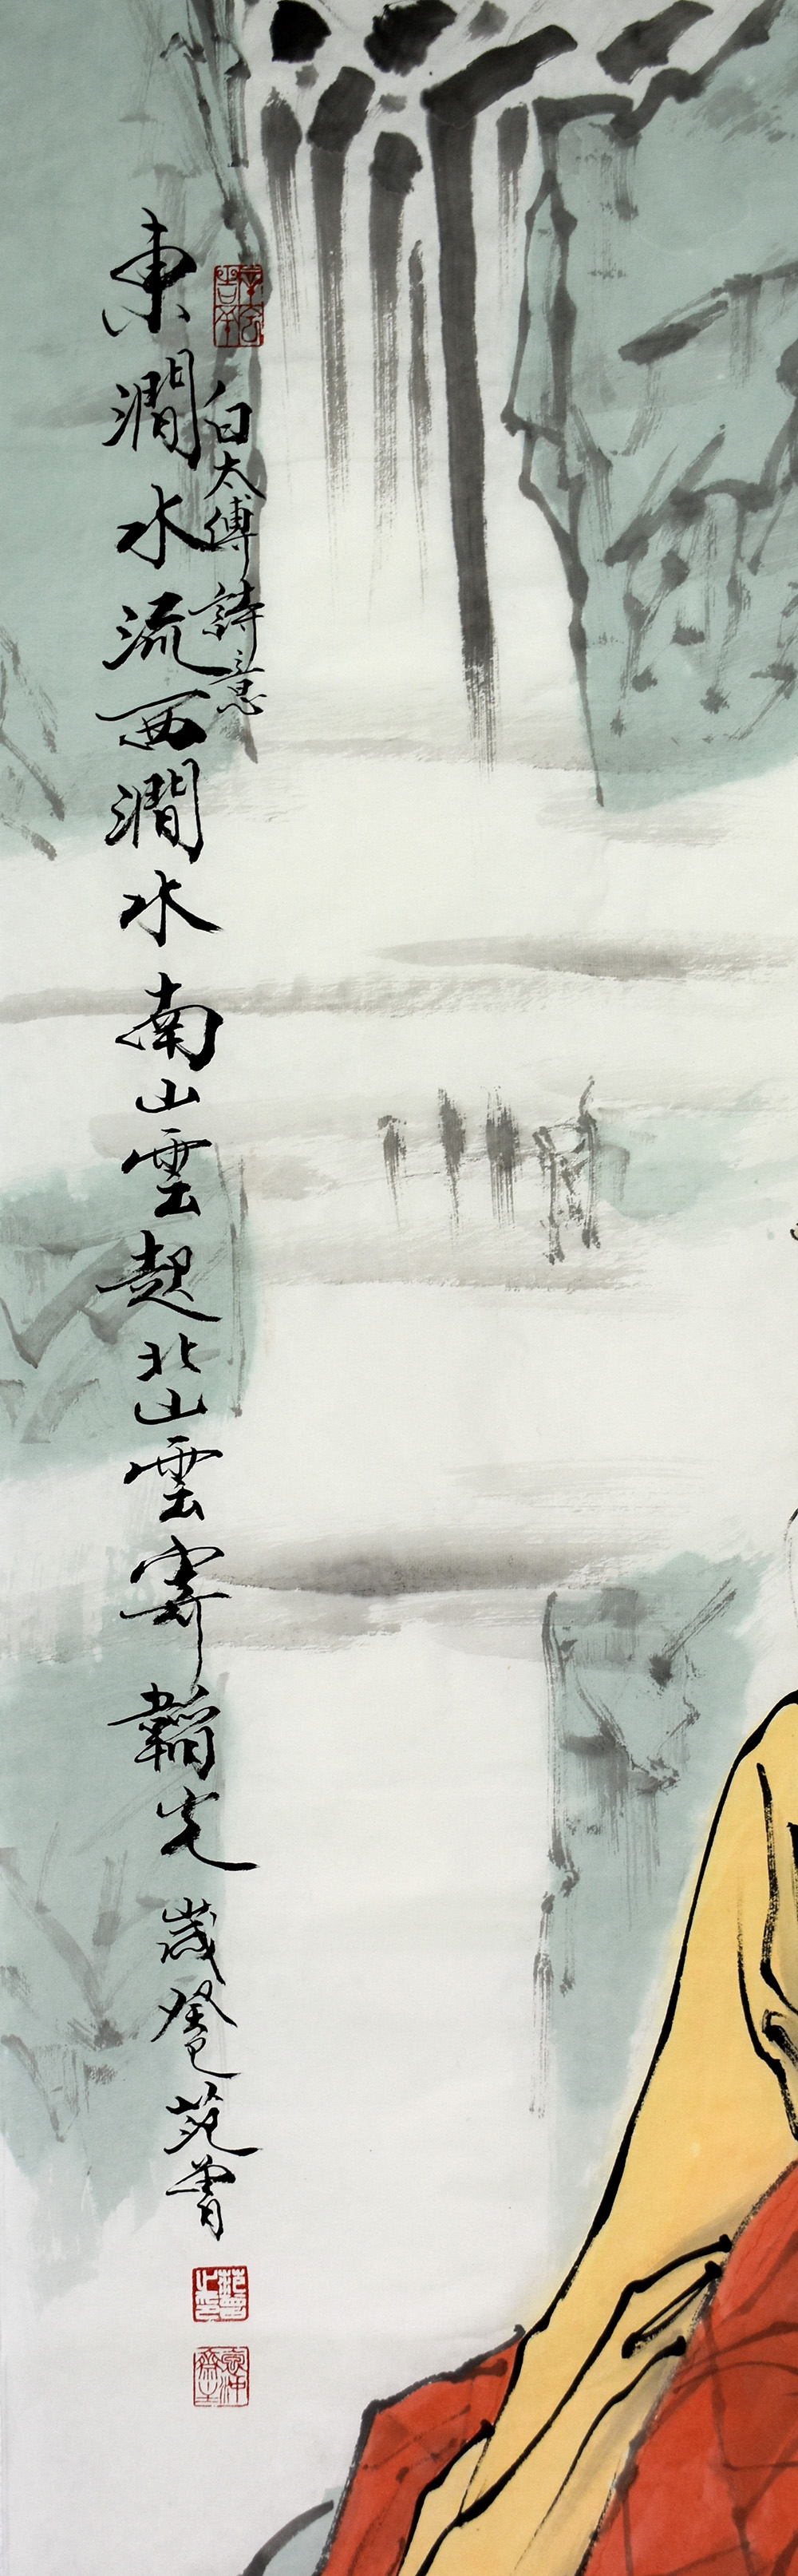 白太傅詩意
東澗水流西澗水南山雲起北山雲寄韜光歲癸巳范曾